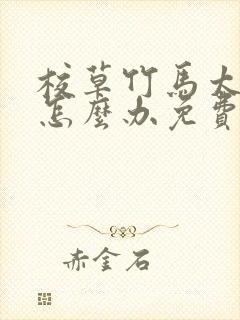 校草竹馬太
怎麼办免費
赤金石